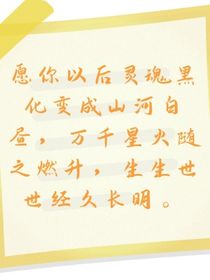 愿你以后灵魂黑
化变成山河白
昼，万千星火随
之燃升，生生世
世经久长明。